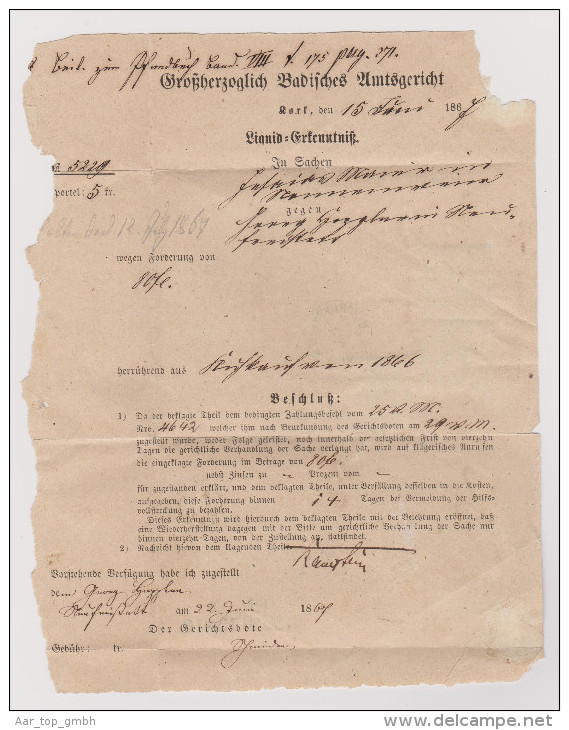 Beil. zum Pfandbuch Band VIII f. 175 pag. 371.
Großherzoglich Badisches Amtsgericht
Kork, den 15 Juni 1867
Liquid-Erkenntniß.
№ 5229
In Sachen
Sportel: 5 kr.
Maier in
Nonnenweier
12. July 1867
gegen
Georg in Neu-
freistett
wegen Forderung von
80 fl.
herrührend aus Kuhkauf von 1866
Beschluß:
1) Da der beklagte Theil dem bedingten Zahlungsbefehl vom 25 v. M.
Nro. 4642 welcher ihm nach Beurkundung des Gerichtsboten am 29 v. M.
zugestellt wurde, weder Folge geleistet, noch innerhalb der gesetzlichen Frist von vierzehn
Tagen die gerichtliche Verhandlung der Sache verlangt hat, wird auf klägerisches Anrufen
die eingeklagte Forderung im Betrage von 80 fl.
nebst Zinsen zu – Prozent vom –
für zugestanden erklärt, und dem beklagten Theile, unter Verfällung desselben in die Kosten,
aufgegeben, diese Forderung binnen 14 Tagen bei Vermeidung der Hilfs-
vollstreckung zu bezahlen.
Dieses Erkenntniß wird hierdurch dem beklagten Theile mit der Belehrung eröffnet, daß
eine Wiederherstellung dagegen mit der Bitte um gerichtliche Verhandlung der Sache nur
binnen vierzehn Tagen, von der Zustellung an, stattfindet.
2) Nachricht hievon dem klagenden Theile
Vorstehende Verfügung habe ich zugestellt
dem Georg
am 22. Juni 1867
Der Gerichtsbote
Gebühr: kr.
Aar_top_gmbh
delcampe.net